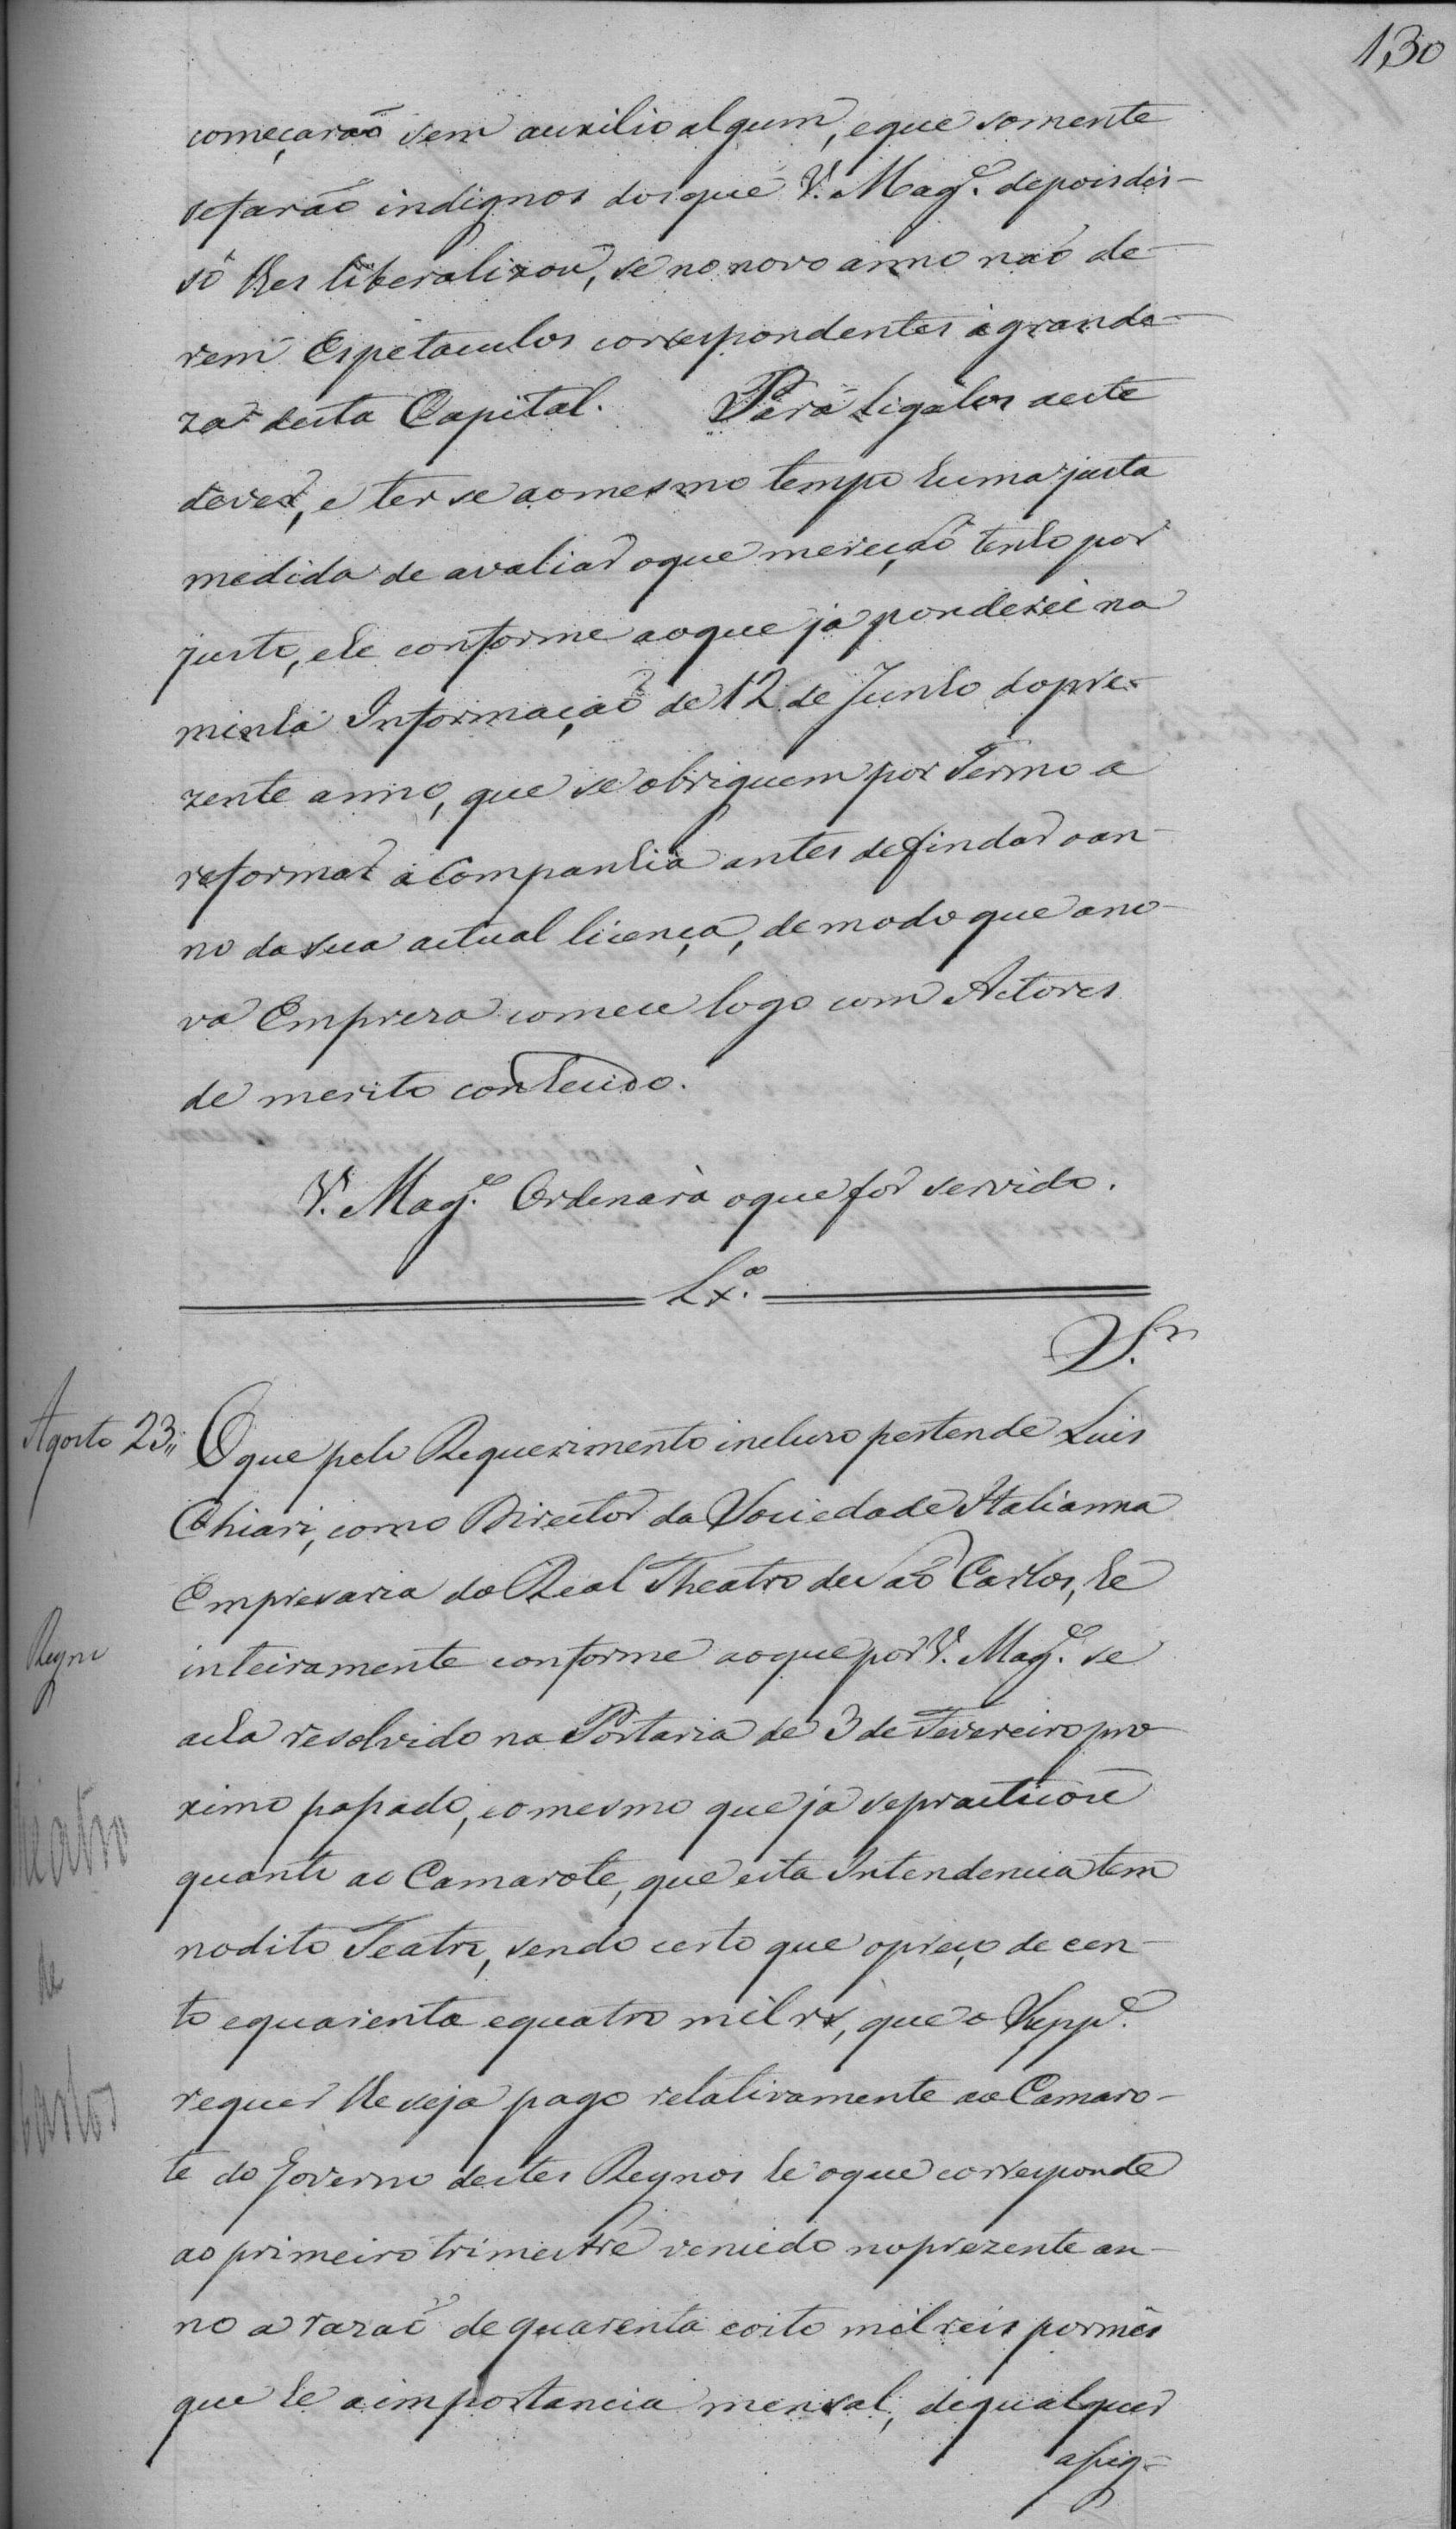 130
começaraõ sem auxilio algum, e que somente
se farão indignos dos que V. Mag.e depois dis-
so lhes liberalizou, se no novo anno naõ de-
rem Espetaculos correspondentes á grande-
za desta Capital. Para ligálos a este
dever, e ter se ao mesmo tempo huma justa
medida de avaliar o que mereçaõ tenho por
justo, e he conforme ao que já ponderei na
minha Informaçaõ de 12 de Junho do pre-
zente anno, que se obriguem por Termo a
reformar a Companhia antes de findar o an-
no da sua actual licença, de modo que a no-
va Empreza comece logo com Actores
de merito conhecido.
V. Mag.e Ordenará o que for servido.
Lx.a
S.r
Agosto 23,,
O que pelo Requerimento incluso pertende Luis
Chiari, como Director da Sociedade Italianna
Empresaria do Real Theatro de Saõ Carlos, he
Reyno
inteiramente conforme ao que por V. Mag.e se
acha resolvido na Portaria de 3 de Fevereiro pro
ximo passado, e o mesmo que já se practicou
Theatro
quanto ao Camarote, que esta Intendencia tem
no dito Teatro, sendo certo que o preço de cen-
de
to e quarenta e quatro mil rs, que o Supp.e
requer lhe seja pago relativamente ao Camaro-
Carlos
te do Governo destes Reynos he o que corresponde
ao primeiro trimestre vencido no prezente an-
no a razaõ de quarenta e oito mil reis por mês
que he a importancia mensal, de qualquer
assig-